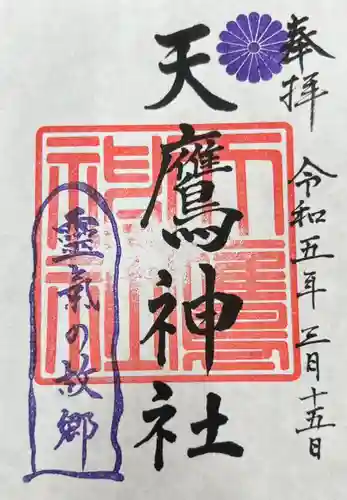 奉拝
令和五年三月十五日
天鷹神社
天鷹神社
靈氣の故郷